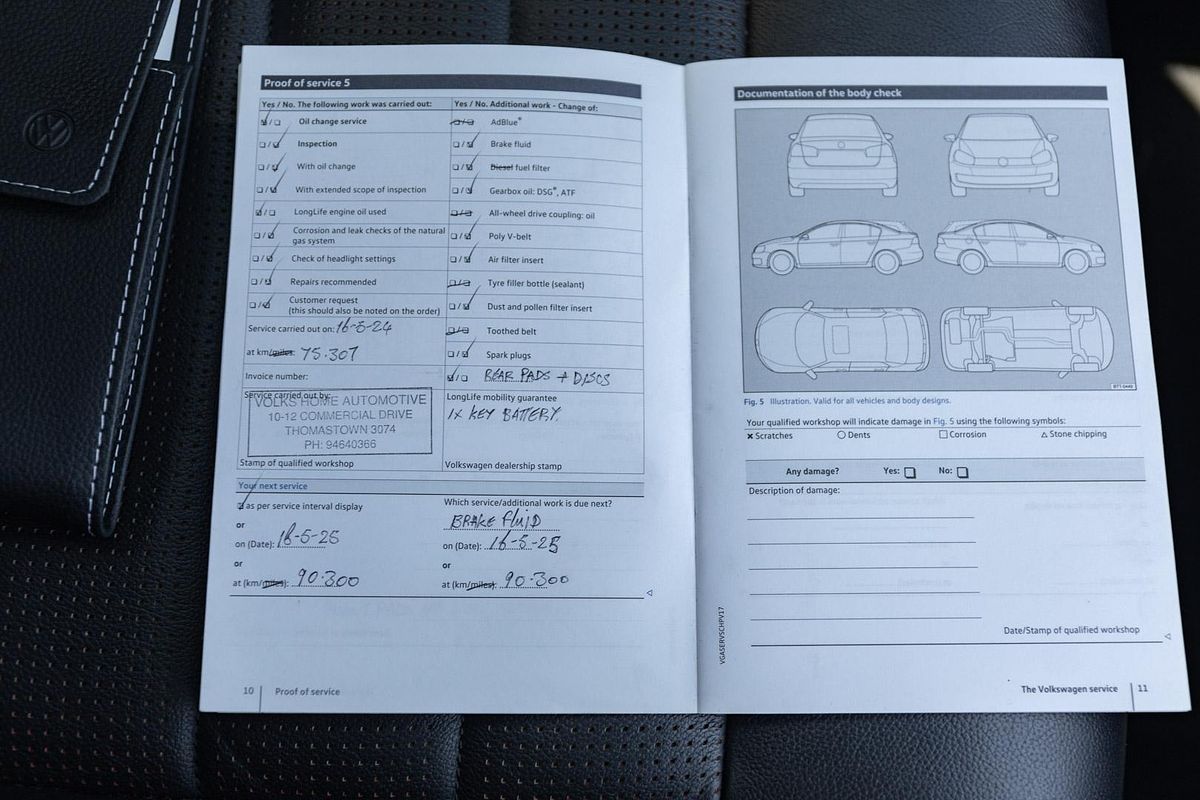 Proof of service 5
Yes / No. The following work was carried out:
Oil change service
Inspection
With oil change
With extended scope of inspection
LongLife engine oil used
Corrosion and leak checks of the natural
gas system
Check of headlight settings
Repairs recommended
Customer request
(this should also be noted on the order)
Service carried out on: 16-5-24
at km/miles: 75.307
Invoice number:
Service carried out by:
VOLKS HOME AUTOMOTIVE
10-12 COMMERCIAL DRIVE
THOMASTOWN 3074
PH: 94640366
Stamp of qualified workshop
Yes / No. Additional work - Change of:
AdBlue®
Brake fluid
Diesel fuel filter
Gearbox oil: DSG®, ATF
All-wheel drive coupling: oil
Poly V-belt
Air filter insert
Tyre filler bottle (sealant)
Dust and pollen filter insert
Toothed belt
Spark plugs
REAR PADS + DISCS
LongLife mobility guarantee
1X KEY BATTERY
Volkswagen dealership stamp
Your next service
as per service interval display
or
on (Date): 16-5-25
or
at (km/miles): 90.300
Which service/additional work is due next?
BRAKE FLUID
on (Date): 16-5-25
or
at (km/miles): 90.300
10 Proof of service
Documentation of the body check
BTT-0449
Fig. 5 Illustration. Valid for all vehicles and body designs.
Your qualified workshop will indicate damage in Fig. 5 using the following symbols:
× Scratches ○ Dents □ Corrosion △ Stone chipping
Any damage? Yes: □ No: □
Description of damage:
Date/Stamp of qualified workshop
VGASERVSCHPV17
The Volkswagen service 11